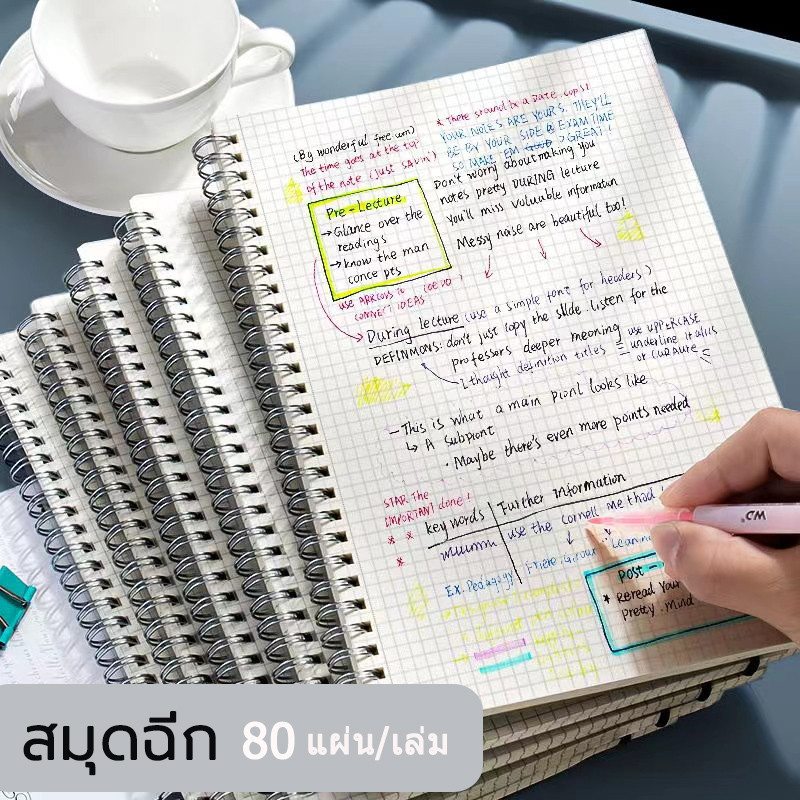 (By wonderful free um)
The time goes at the top
of the note (just savin)
* There sround be a Date, cups!
YOUR NOTES ARE YOURS. THEY'LL
BE BY YOUR SIDE @ EXAM TIME
SO MAKE EM GOOD > GREAT!
Don't worry about making you
notes pretty DURING lecture
You'll miss valuable information
Messy naise are beautiful too!
Pre-Lecture
→ Glance over the
readings
→ know the man
conce pts
USE ARROWS TO
CONNECT IDEAS
During lecture (use a simple font for headers)
DEFINMONS: don't just copy the slide. listen for the
professors deeper meoning
I thought definition titles =
use UPPERCASE
underline italics
or CURAUTE
- This is what a main pionl looks like
↳ A Subpiont
· Maybe there's even more points needed
STAR The
IMPORTANT done!
* *
*
key words
Further Information
use the cornell me thad!
EX. Pedagogy
Post -
* Reread Your
Pretty. Mind
สมุดฉีก 80 แผ่น/เล่ม